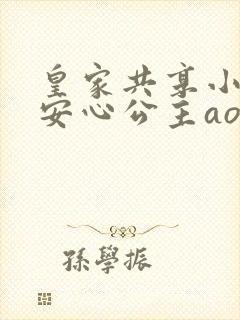 皇家共享小
安心公主ao
孫學振